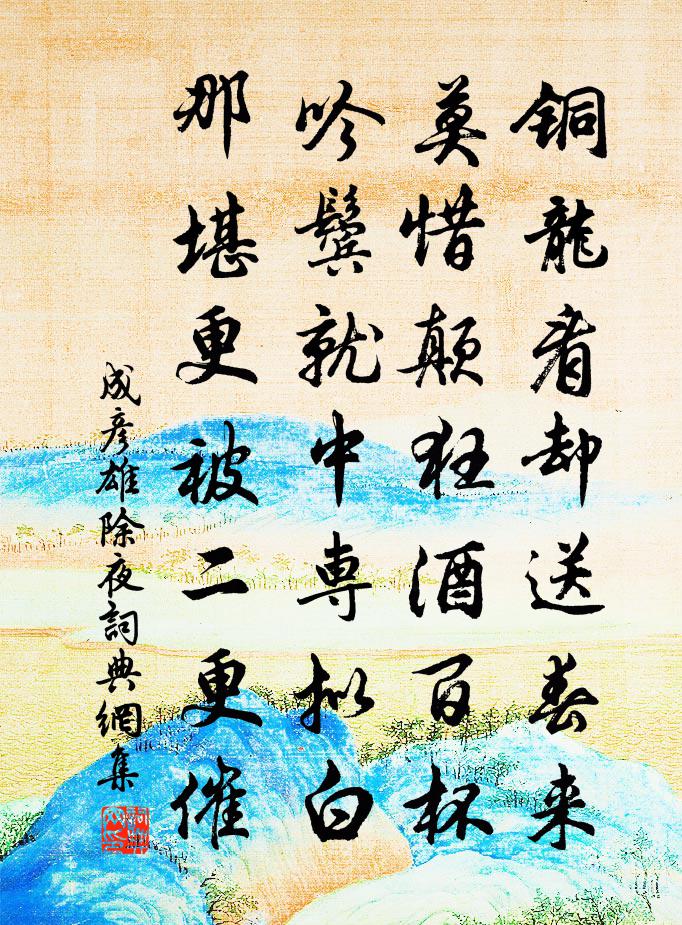 铜龍看却送春来
莫惜颠狂酒百杯
吟鬢就中専拟白
那堪更被二更催
成彦雄除夜詞典網集